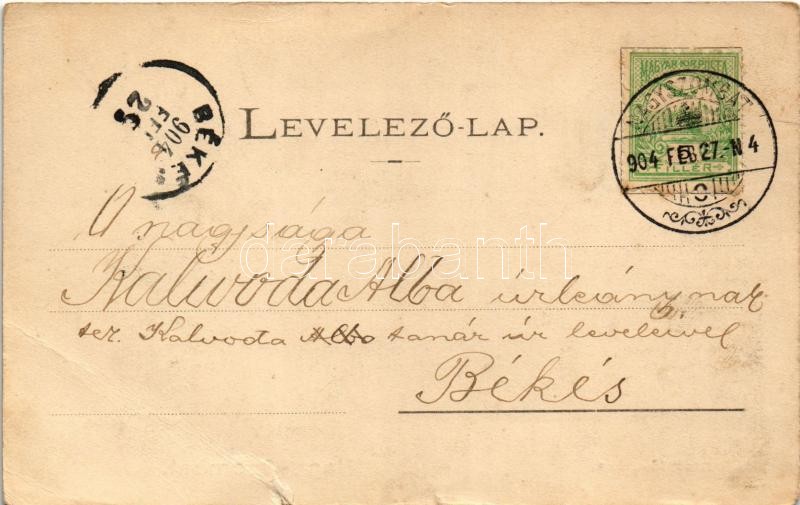 BÉKÉS
904 FEB 28
LEVELEZŐ-LAP.
MAGYAR KIR. POSTA
5
FILLÉR
NAGYSZOMBAT
904 FEB 27.-N 4
Ő nagysága
Kalwoda Alba úrleánynak
Kalvoda Alba tanár úr leveleivel
Békés
darabanth